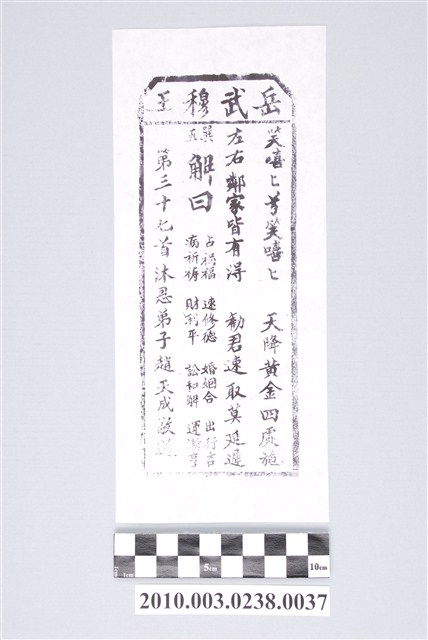 岳武穆王
笑嘻匕兮笑嘻匕 天降黃金四處施
左右鄰家皆有淂 勸君速取莫延遲
巽五
解曰
占祸福 速修德 婚姻合 出行吉
病祈祷 財利平 訟和解 運漸亨
第三十七首沐恩弟子趙天成敬送
1cm 5cm 10cm
2010.003.0238.0037